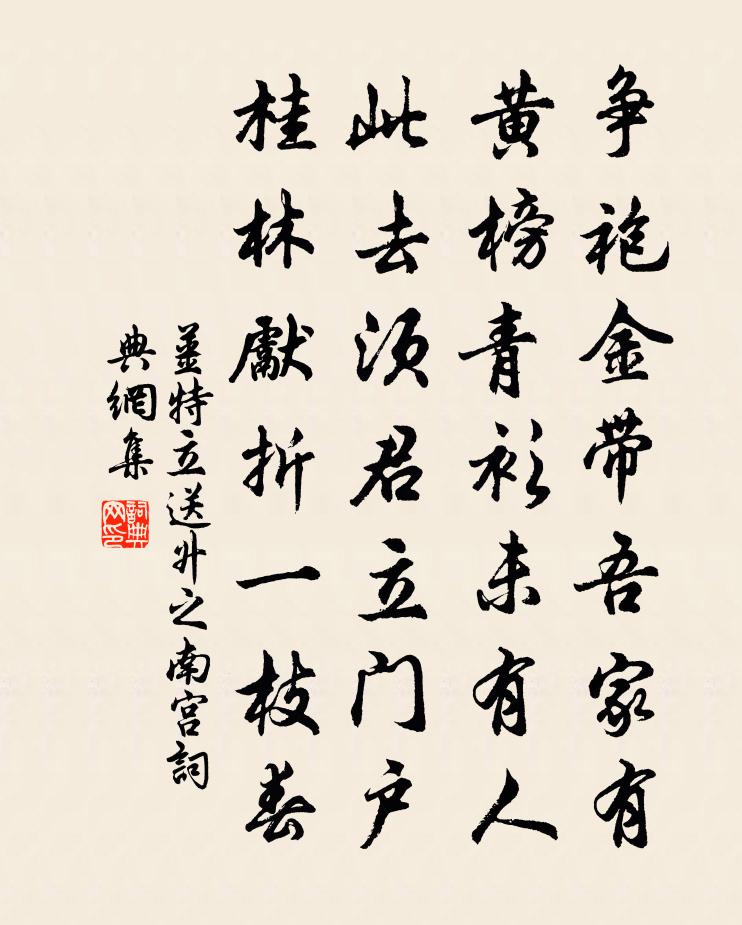 争袍金带吾家有
黄榜青衫未有人
此去须君立门户
桂林獻折一枝春
姜特立送外之南宫詞
典網集
詞典網印